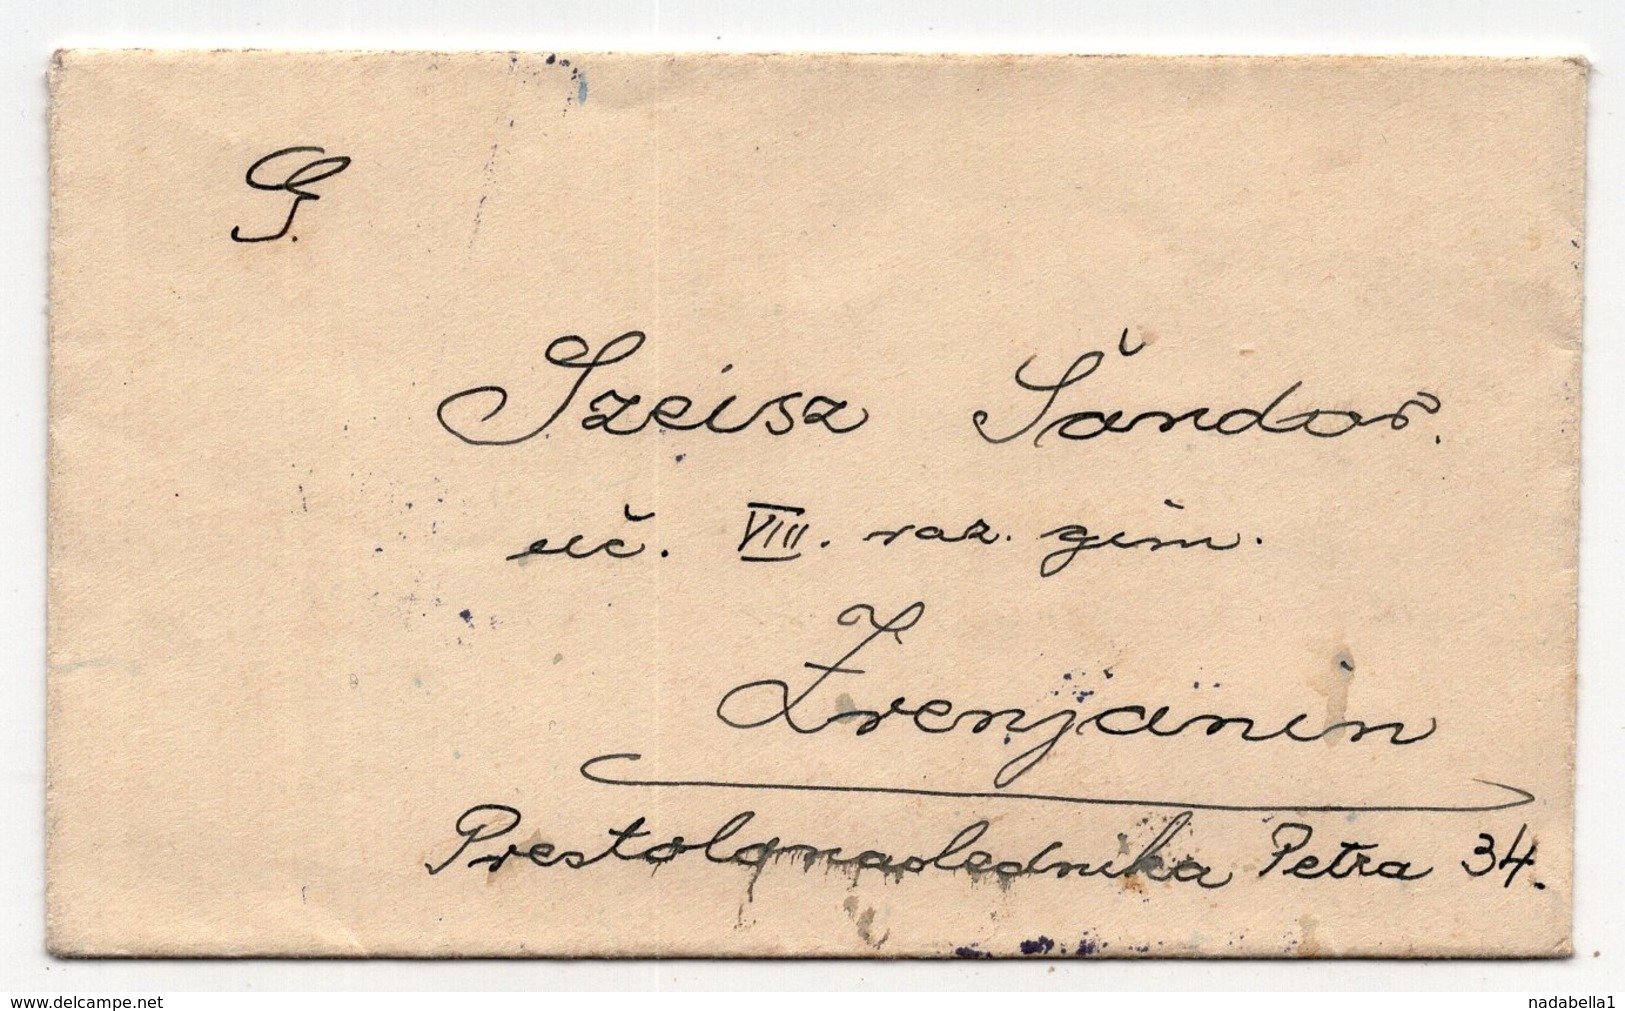 G.
Szeisz Šandor.
uč. VIII. raz. gim.
Zrenjanin
Prestolonaslednika Petra 34.
www.delcampe.net
nadabella1